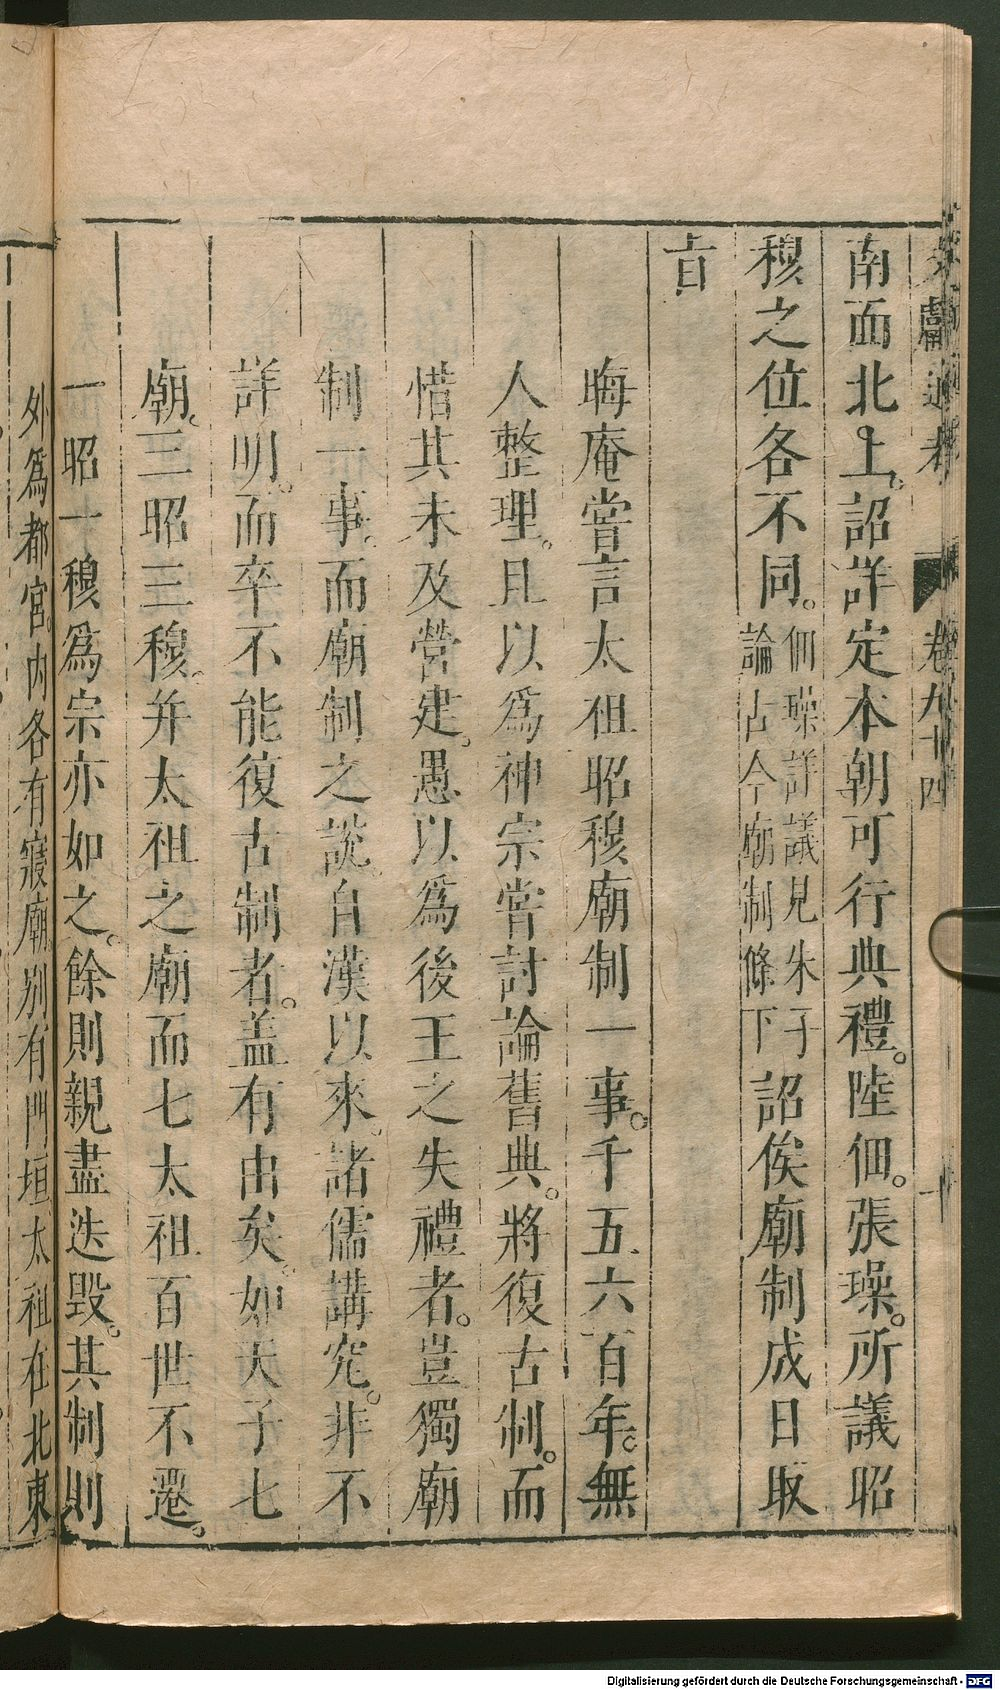 文獻通考 卷九十四 十
南面北上。詔詳定本朝可行典禮。陸佃。張璪。所議昭
穆之位各不同。佃璪詳議見朱子論古今廟制條下詔俟廟制成日取
旨
晦庵嘗言太祖昭穆廟制一事。千五六百年。無
人整理。且以爲神宗嘗討論舊典。將復古制。而
惜其未及營建。愚以爲後王之失禮者。豈獨廟
制一事。而廟制之說。自漢以來。諸儒講究。非不
詳明。而卒不能復古制者。盖有由矣。如天子七
廟。三昭三穆。并太祖之廟而七太祖百世不遷。
一昭一穆爲宗亦如之。餘則親盡迭毀。其制則
外爲都宮。內各有寢廟別有門垣太祖在北東
Digitalisierung gefördert durch die Deutsche Forschungsgemeinschaft - DFG